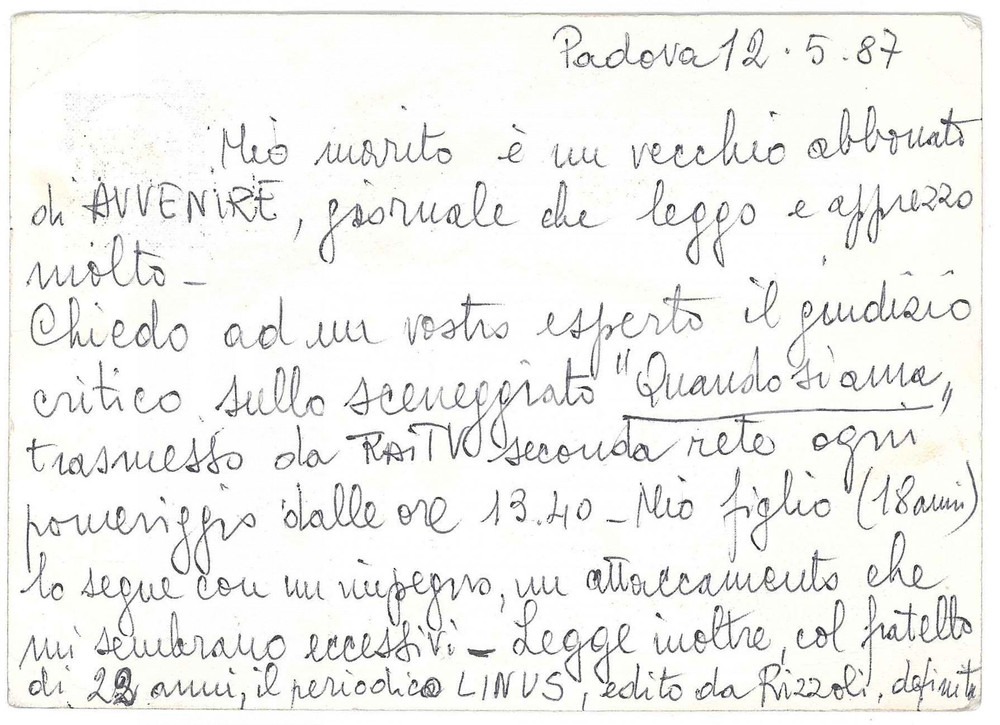 Padova 12.5.87
Mio marito è un vecchio abbonato
di AVVENIRE, giornale che leggo e apprezzo
molto -
Chiedo ad un vostro esperto il giudizio
critico sullo sceneggiato "Quando si ama"
trasmesso da RAITV seconda rete ogni
pomeriggio dalle ore 13.40 - Mio figlio (18 anni)
lo segue con un impegno, un attaccamento che
mi sembrano eccessivi - Legge inoltre, col fratello
di 22 anni, il periodico LINUS, edito da Rizzoli, definita